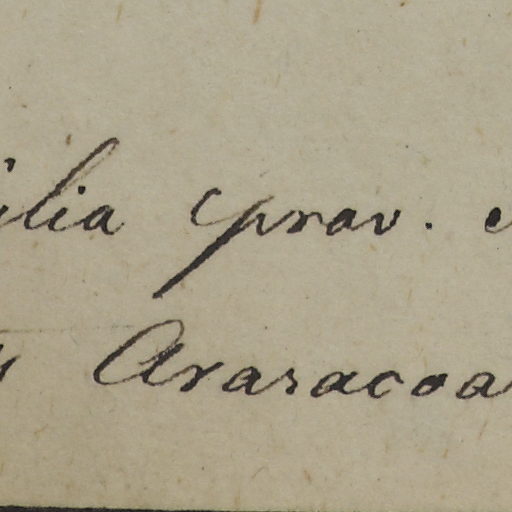 ilia prov.
Araracoa